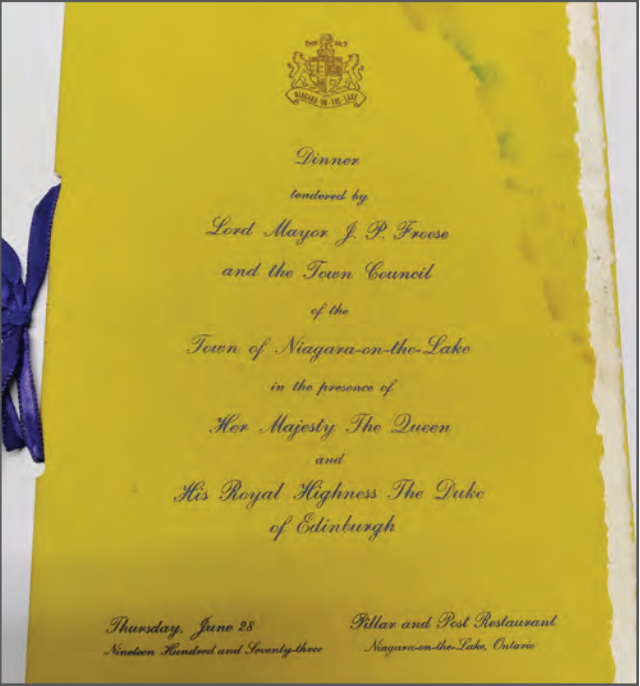 NIAGARA-ON-THE-LAKE
Dinner
tendered by
Lord Mayor J. P. Froese
and the Town Council
of the
Town of Niagara-on-the-Lake
in the presence of
Her Majesty The Queen
and
His Royal Highness The Duke
of Edinburgh
Thursday, June 28
Nineteen Hundred and Seventy-three
Pillar and Post Restaurant
Niagara-on-the-Lake, Ontario